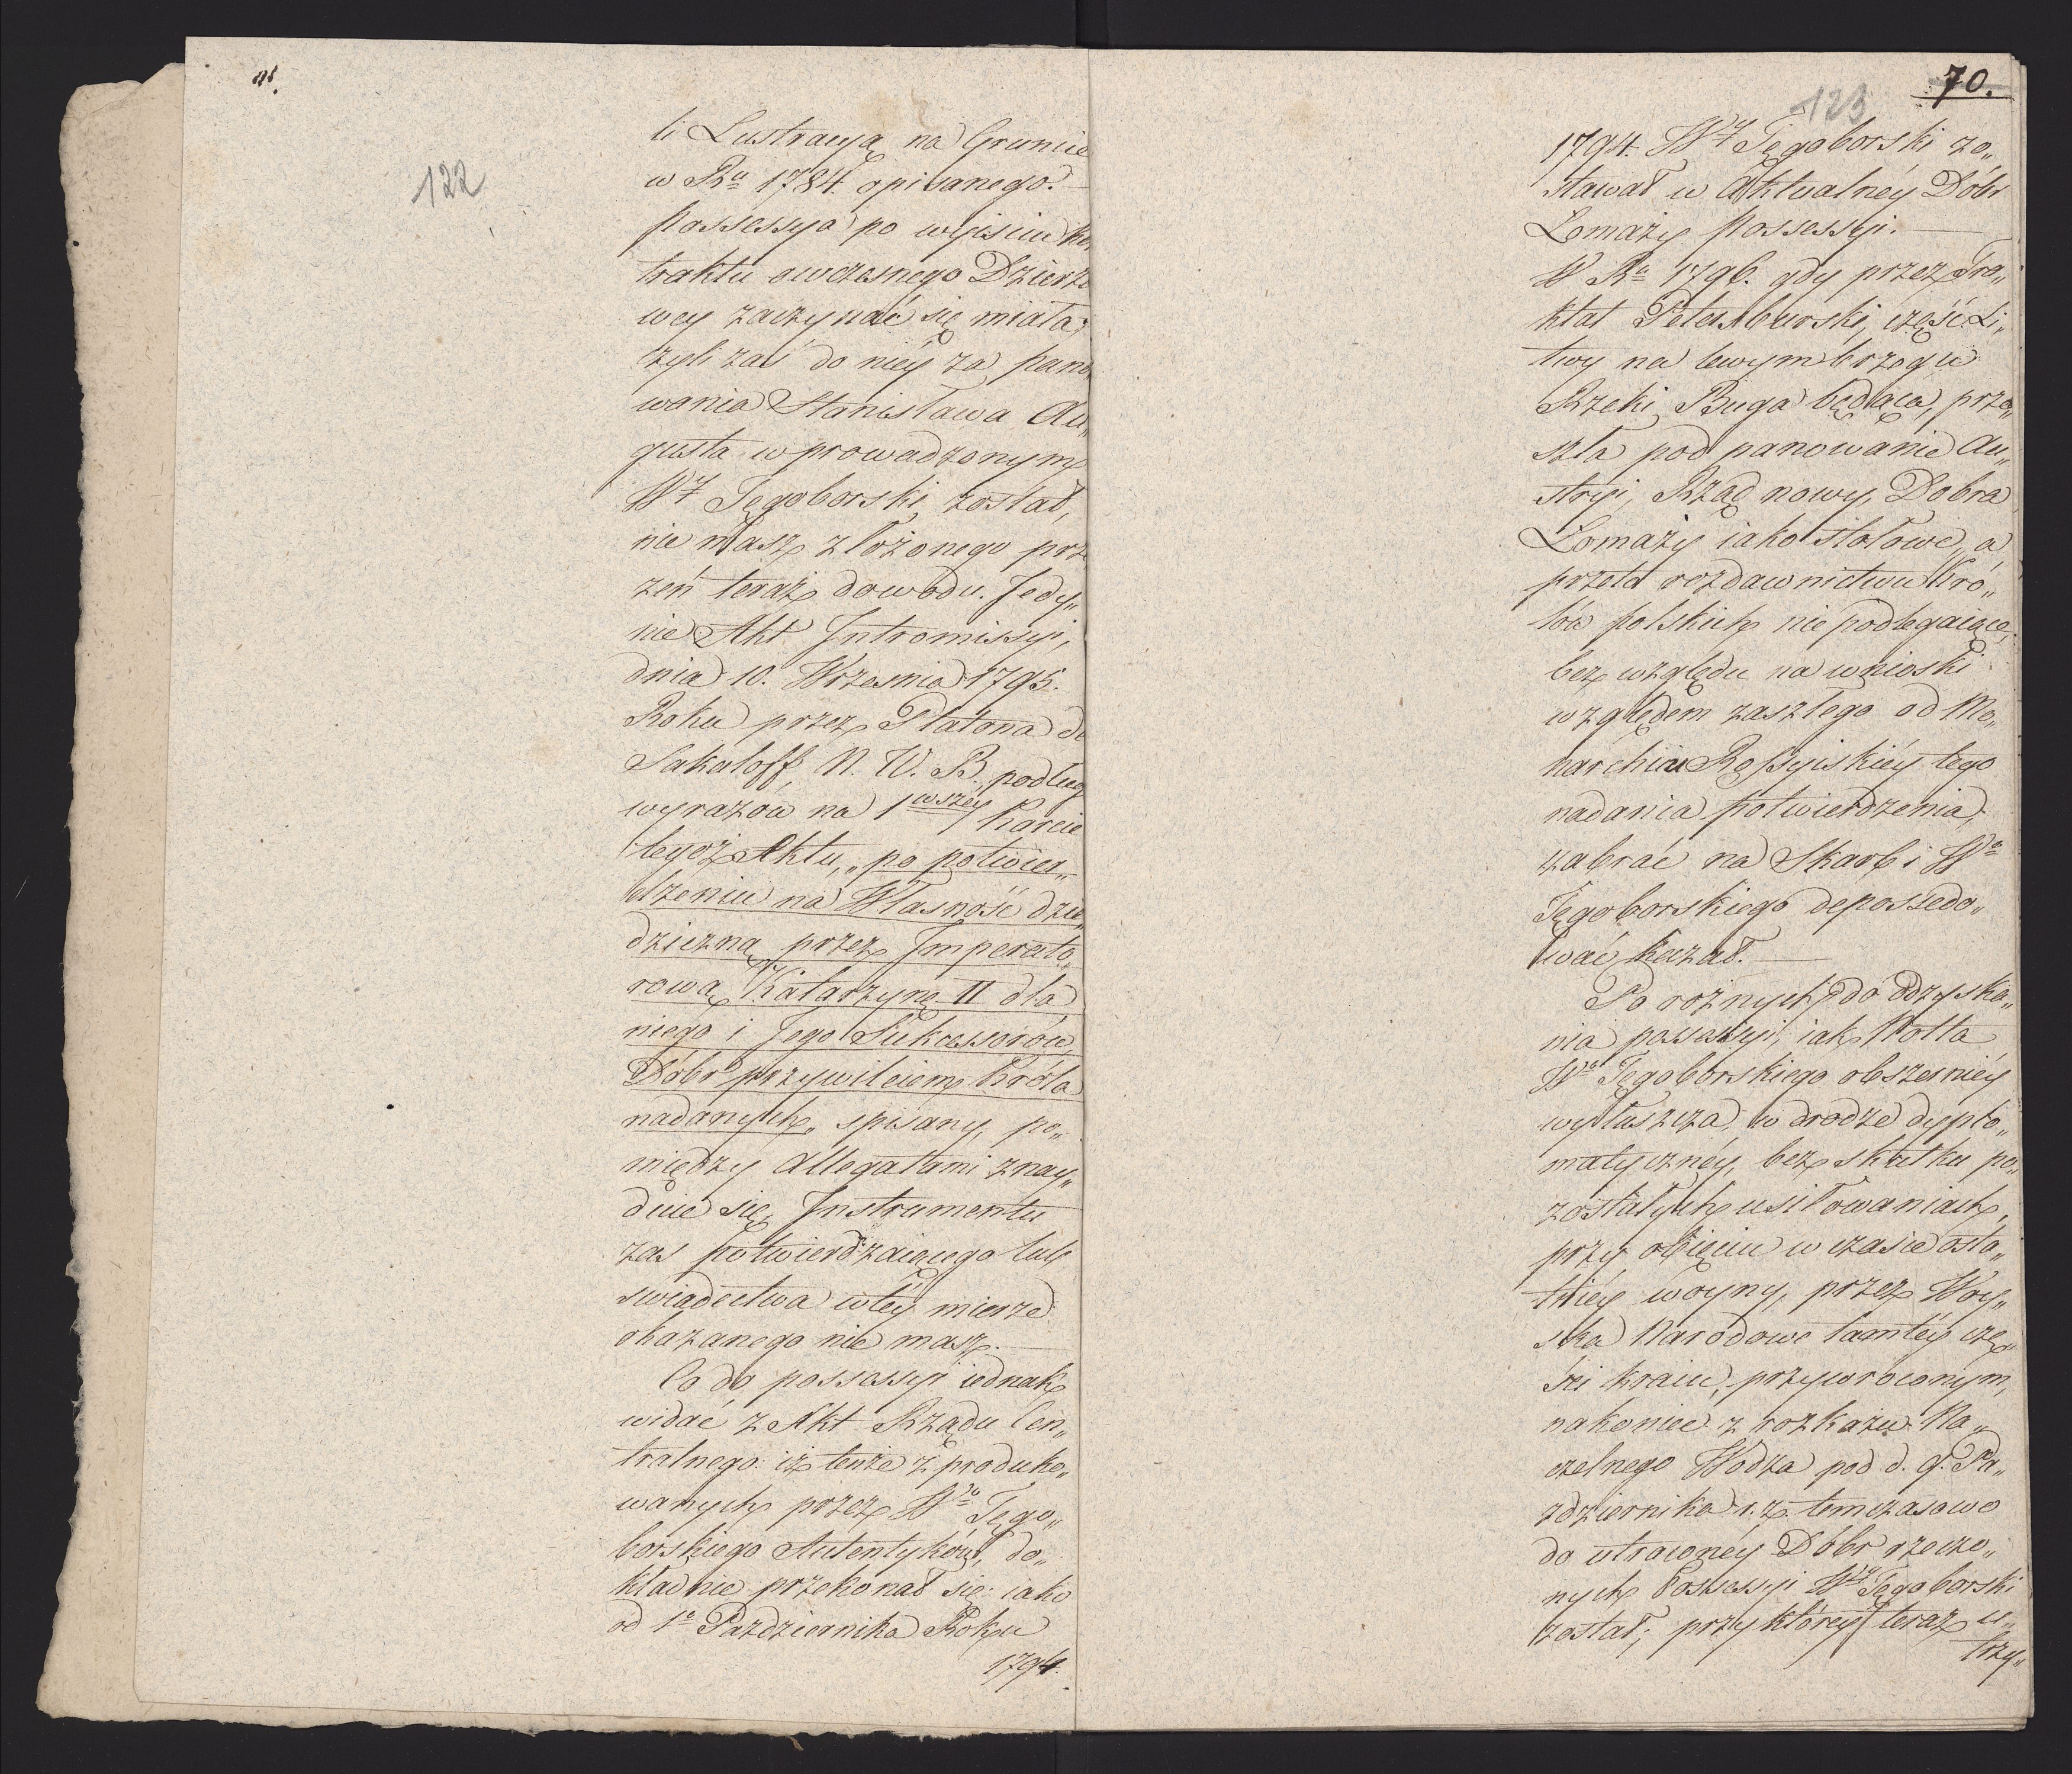 122
li Lustracyą na Gruncie
w Ru 1784. opisanego.
Possessya po wyiściu ko
traktu owczesnego Dzierża
wcy zaczynać się miała;
czyli zaś do niéy za pano
wania Stanisława Au„
gusta wprowadzonym
WJ Tęgoborski został,
nie masz złożonego prze
zeń teraz dowodu. Jedy„
nie Akt Intromissyi,
dnia 10. Wrzesnia 1795.
Roku przez Platona de
Sakaloff, N. W. R. podług
wyrazów na 1wszéy Karcie
tegoż Aktu, „po potwier„
dzeniu na Własność dzie„
dziczną przez Imperato„
rową Katarzynę II dla
niego i Jego Sukcessorów,
Dóbr przywileiem Króla
nadanych„ spisany, po„
między Allegatami znay„
duie się, Instrumentu
zas potwierdzaiącego lub
swiadectwa w téy mierze
okazanego nie masz.
Co do possessyi iednak
widać z Akt Rządu Cen„
tralnego: iż tenże z produko„
wanych przez Wgo Tęgo„
borskiego Autentyków, do„
kładnie przekonał się: iako
od 1o Pazdziernika Roku
1794.
70.
123
1794. WJ Tęgoborski zo„
stawał w Aktualnéy Dóbr
Łomazy Possessyi.
W Ru 1796. gdy przez Tra„
ktat Petersburski, część Li„
twy na lewym brzegu
Rzeki Buga będąca, prze„
szła pod panowanie Au„
stryi, Rząd nowy, Dobra
Łomazy iako stołowe, a
przeto rozdawnictwu Kró„
lów polskich nie podlegaiące,
bez względu na wnioski
względem zaszłego od Mo„
narchini Rossyiskiéy tego
nadania potwierdzenia,
zabrać na Skarb i Wo
Tęgoborskiego depossedo„
wać kazał.
Po rożnych do odzyska„
nia possessyi, iak Notta
Wgo Tęgoborskiego obszerniéy
wyłuszcza, w drodze dyplo„
matycznéy, bez skutku po„
zostałych usiłowaniach,
przy obięciu w czasie osta„
tniéy woyny, przez Woy„
ska Narodowe tamtéy czę„
ści kraiu, przywróconym,
nakoniec z rozkazu Na„
czelnego Wodza pod d. 9. Pa„
zdziernika r. z. tymczasowo
do utraconéy Dóbr rzeczo„
nych Possessyi WJ Tęgoborski
został; przy któréy teraz u„
trzy„